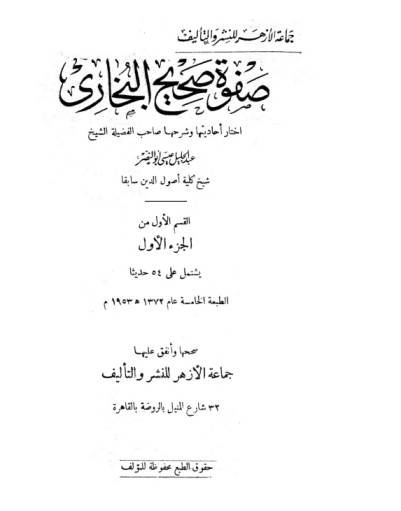 جماعة الأزهر للنشر والتأليف
صفوة صحيح البخارى
اختار أحاديثها وشرحها صاحب الفضيلة الشيخ
عبد الجليل عيسى أبو النصر
شيخ كلية أصول الدين سابقا
القسم الأول من
الجزء الأول
يشتمل على ٥٤ حديثا
الطبعة الخامسة عام ١٣٧٢ ه ١٩٥٣ م
صححها وأنفق عليها
جماعة الأزهر للنشر والتأليف
٣٢ شارع المنيل بالروضة بالقاهرة
حقوق الطبع محفوظة للمؤلف